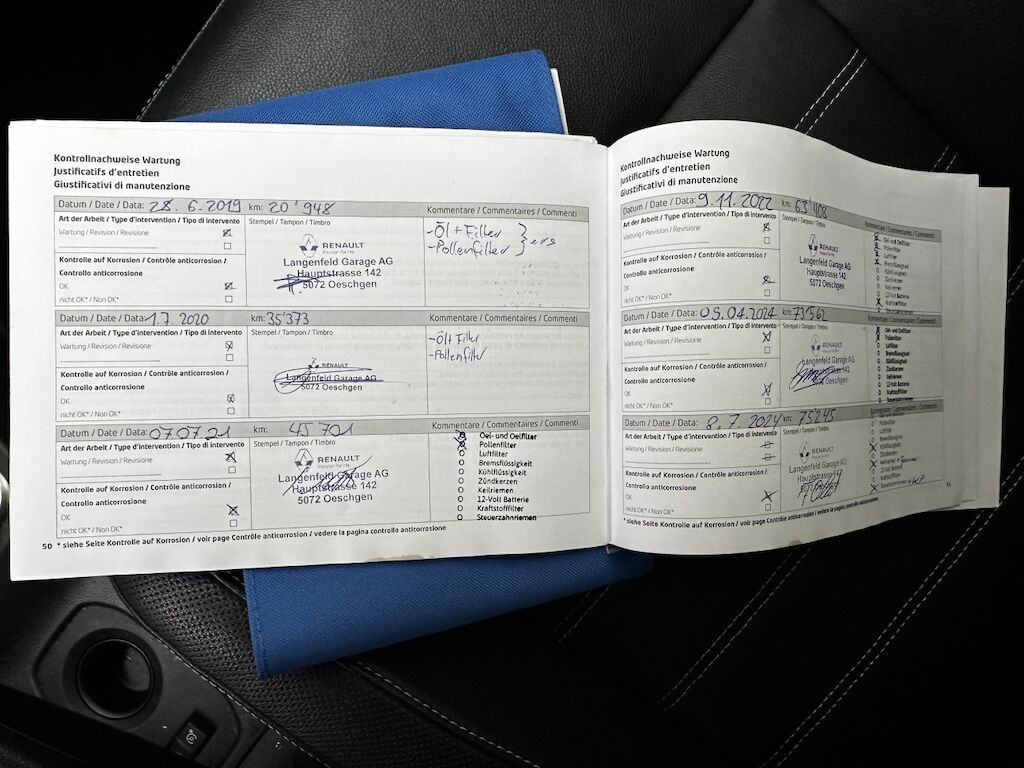 Kontrollnachweise Wartung
Justificatifs d'entretien
Giustificativi di manutenzione
Datum / Date / Data: 28. 6. 2019 km: 20'948 Kommentare / Commentaires / Commenti
Art der Arbeit / Type d'intervention / Tipo di intervento Stempel / Tampon / Timbro
Wartung / Revision / Revisione
- Öl + Filter
- Pollenfilter
Kontrolle auf Korrosion / Contrôle anticorrosion /
Controllo anticorrosione
OK
nicht OK* / Non OK*
RENAULT
Passion for life
Langenfeld Garage AG
Hauptstrasse 142
5072 Oeschgen
Datum / Date / Data: 1.7. 2020 km: 35'373 Kommentare / Commentaires / Commenti
Art der Arbeit / Type d'intervention / Tipo di intervento Stempel / Tampon / Timbro
Wartung / Revision / Revisione
- Öl + Filter
- Pollenfilter
Kontrolle auf Korrosion / Contrôle anticorrosion /
Controllo anticorrosione
OK
nicht OK* / Non OK*
RENAULT
Langenfeld Garage AG
5072 Oeschgen
Datum / Date / Data: 07.07.21 km: 45 701 Kommentare / Commentaires / Commenti
Art der Arbeit / Type d'intervention / Tipo di intervento Stempel / Tampon / Timbro
Wartung / Revision / Revisione
Kontrolle auf Korrosion / Contrôle anticorrosion /
Controllo anticorrosione
OK
nicht OK* / Non OK*
RENAULT
Passion for life
Langenfeld Garage AG
Hauptstrasse 142
5072 Oeschgen
Oel- und Oelfilter
Pollenfilter
Luftfilter
Bremsflüssigkeit
Kühlflüssigkeit
Zündkerzen
Keilriemen
12-Volt Batterie
Kraftstofffilter
Steuerzahnriemen
50 * siehe Seite Kontrolle auf Korrosion / voir page Contrôle anticorrosion / vedere la pagina controllo anticorrosione
Kontrollnachweise Wartung
Justificatifs d'entretien
Giustificativi di manutenzione
Datum / Date / Data: 9.11.2022 km: 63'408 Kommentare / Commentaires / Commenti
Art der Arbeit / Type d'intervention / Tipo di intervento Stempel / Tampon / Timbro
Wartung / Revision / Revisione
Kontrolle auf Korrosion / Contrôle anticorrosion /
Controllo anticorrosione
OK
nicht OK* / Non OK*
RENAULT
Langenfeld Garage AG
Hauptstrasse 142
5072 Oeschgen
Oel- und Oelfilter
Pollenfilter
Luftfilter
Bremsflüssigkeit
Kühlflüssigkeit
Zündkerzen
Keilriemen
12-Volt Batterie
Kraftstofffilter
Datum / Date / Data: km: 73'562 Kommentare / Commentaires / Commenti
Art der Arbeit / Type d'intervention / Tipo di intervento Stempel / Tampon / Timbro
Wartung / Revision / Revisione
Kontrolle auf Korrosion / Contrôle anticorrosion /
Controllo anticorrosione
OK
nicht OK* / Non OK*
RENAULT
Langenfeld Garage AG
5072 Oeschgen
Oel- und Oelfilter
Pollenfilter
Luftfilter
Bremsflüssigkeit
Kühlflüssigkeit
Zündkerzen
Keilriemen
12 Volt Batterie
Kraftstofffilter
Steuerzahnriemen
Datum / Date / Data: 8. 7. 2024 km: 75245 Kommentare / Commentaires / Commenti
Art der Arbeit / Type d'intervention / Tipo di intervento Stempel / Tampon / Timbro
Wartung / Revision / Revisione
Kontrolle auf Korrosion / Contrôle anticorrosion /
Controllo anticorrosione
OK
nicht OK* / Non OK*
RENAULT
Langenfeld Garage AG
Hauptstrasse
5072 Oeschgen
Pollenfilter
Luftfilter
Bremsflüssigkeit
Kühlflüssigkeit
Zündkerzen
Keilriemen
12 Volt Batterie
Kraftstofffilter
Steuerzahnriemen + WP
* siehe Seite Kontrolle auf Korrosion / voir page Contrôle anticorrosion / vedere la pagina controllo anticorrosione
51